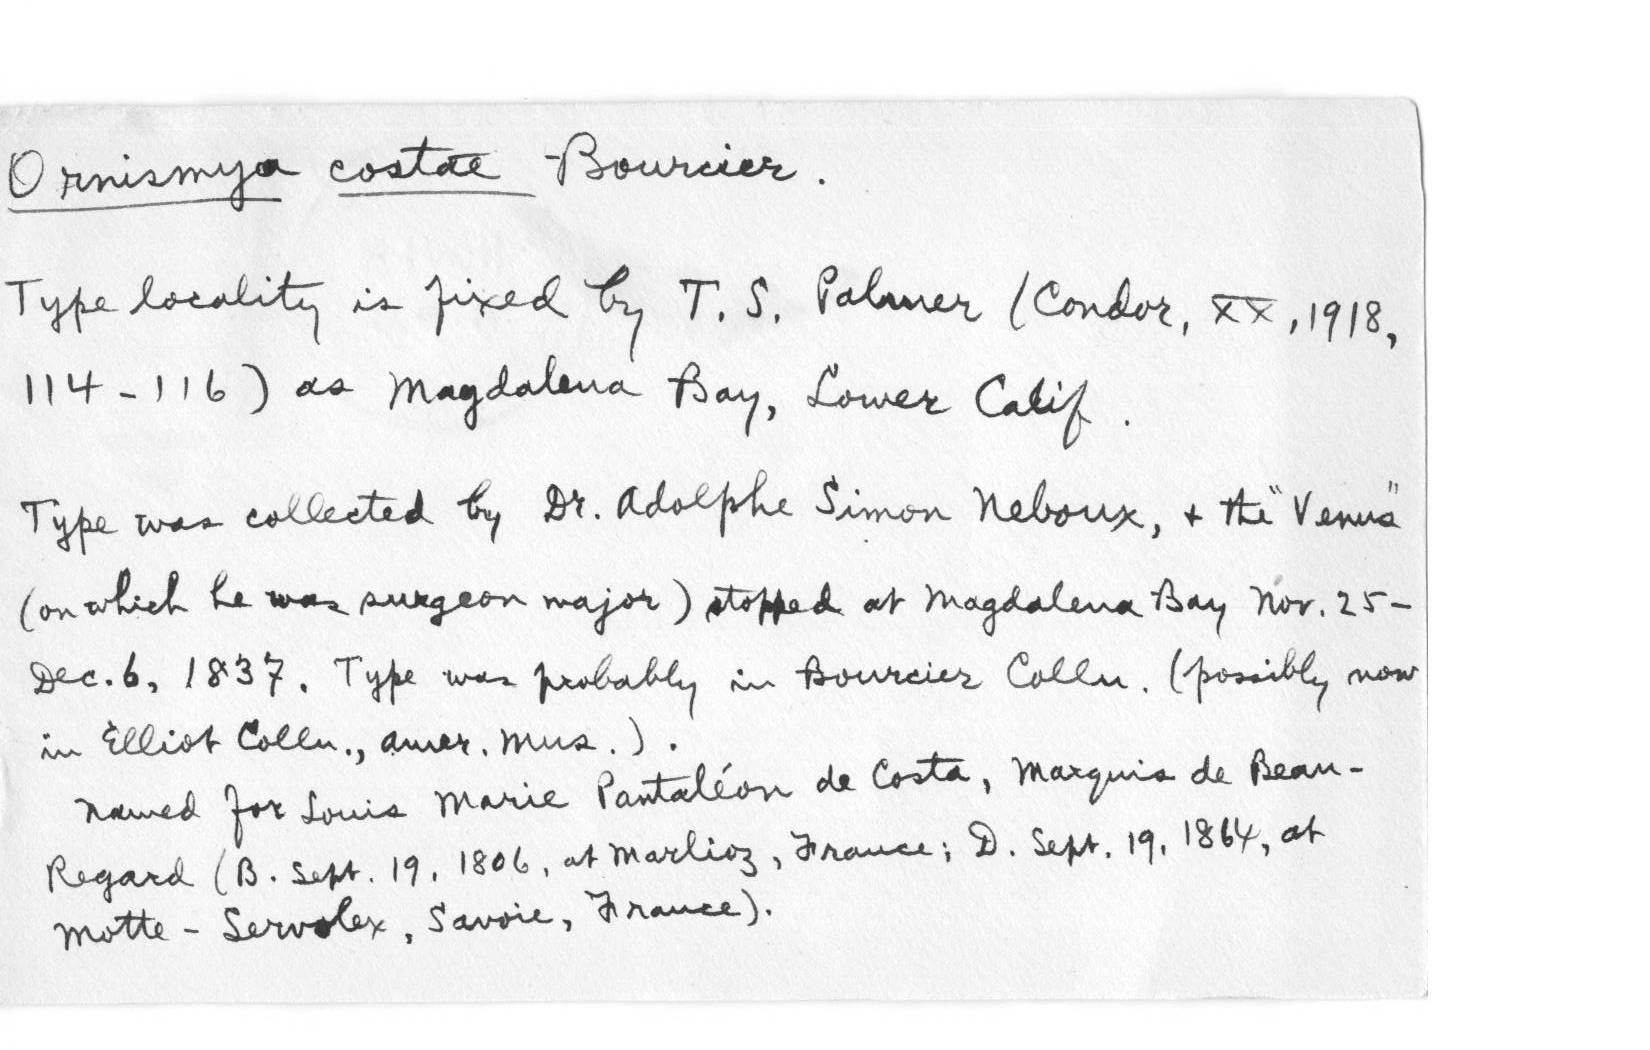 Ornismya costae Bourcier.
Type locality is fixed by T. S. Palmer (Condor, XX, 1918,
114-116) as Magdalena Bay, Lower Calif.
Type was collected by Dr. Adolphe Simon Neboux, + the "Venus"
(on which he was surgeon major) stopped at Magdalena Bay Nov. 25-
Dec. 6, 1837. Type was probably in Bourcier Colln. (possibly now
in Elliot Colln., Amer. Mus.).
Named for Louis Marie Pantaléon de Costa, Marquis de Beau-
Regard (B. Sept. 19, 1806, at Marlioz, France; D. Sept. 19, 1864, at
Motte-Servolex, Savoie, France).